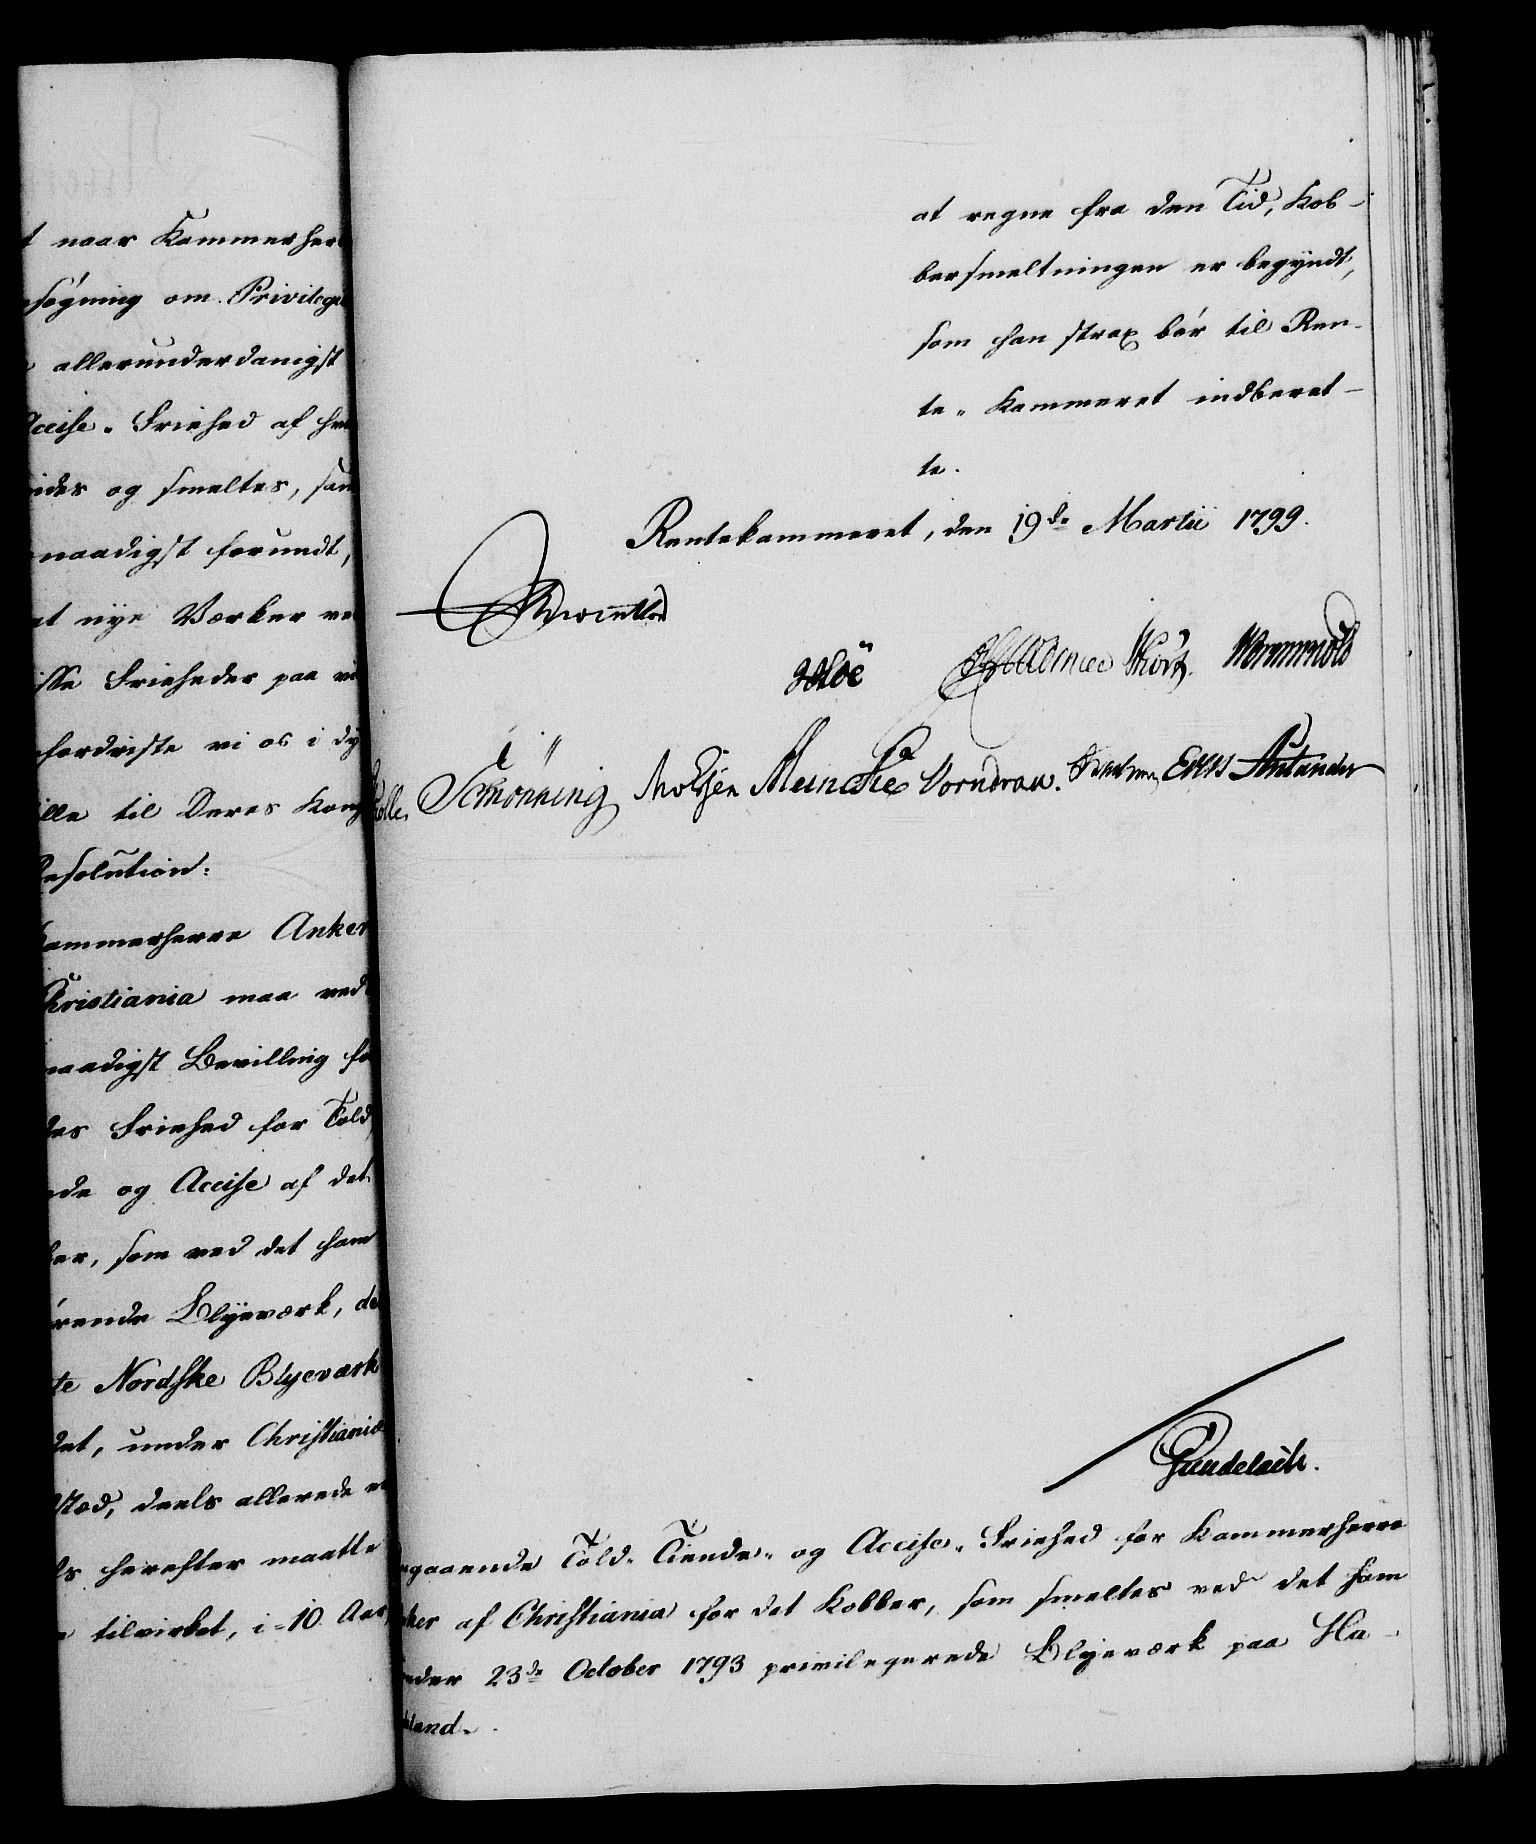 naar Kammerher
søgning om Privilegi
allerunderdanigst
Accise-Friehed af
ides og smeltes, sam
naadigst forundt,
at nye Værker ve
isse Friheder paa
fordriste vi os i dy
ille til Deres Kong
Resolution:
Kammerherre Anker
Christiania maa ved
naadigst Bevilling fo
des Friehed for Told,
nde og Accise af det
ber, som ved det ham
rende Blyeværk, de
te Nordske Blyeværk
det, under Christiania
Stæd, deels allerede
ls herefter maatte
tilvirket, i 10 Aar,
at regne fra den Tid, Kob-
bersmeltningen er begyndt,
som han strax bør til Ren-
te-Kammeret indberet-
te.
Rentekammeret, den 19de Martii 1799.
Reventlow
Wormskiold
Schønning Moltzen Meincke Vorndran. Eders Autander
Gundelach.
gaaende Told- Tiende- og Accise-Friehed for Kammerherre
ker af Christiania for det Kobber, som smeltes ved det ham
nder 23de October 1793 privilegerede Blyeværk paa Ha-
land.